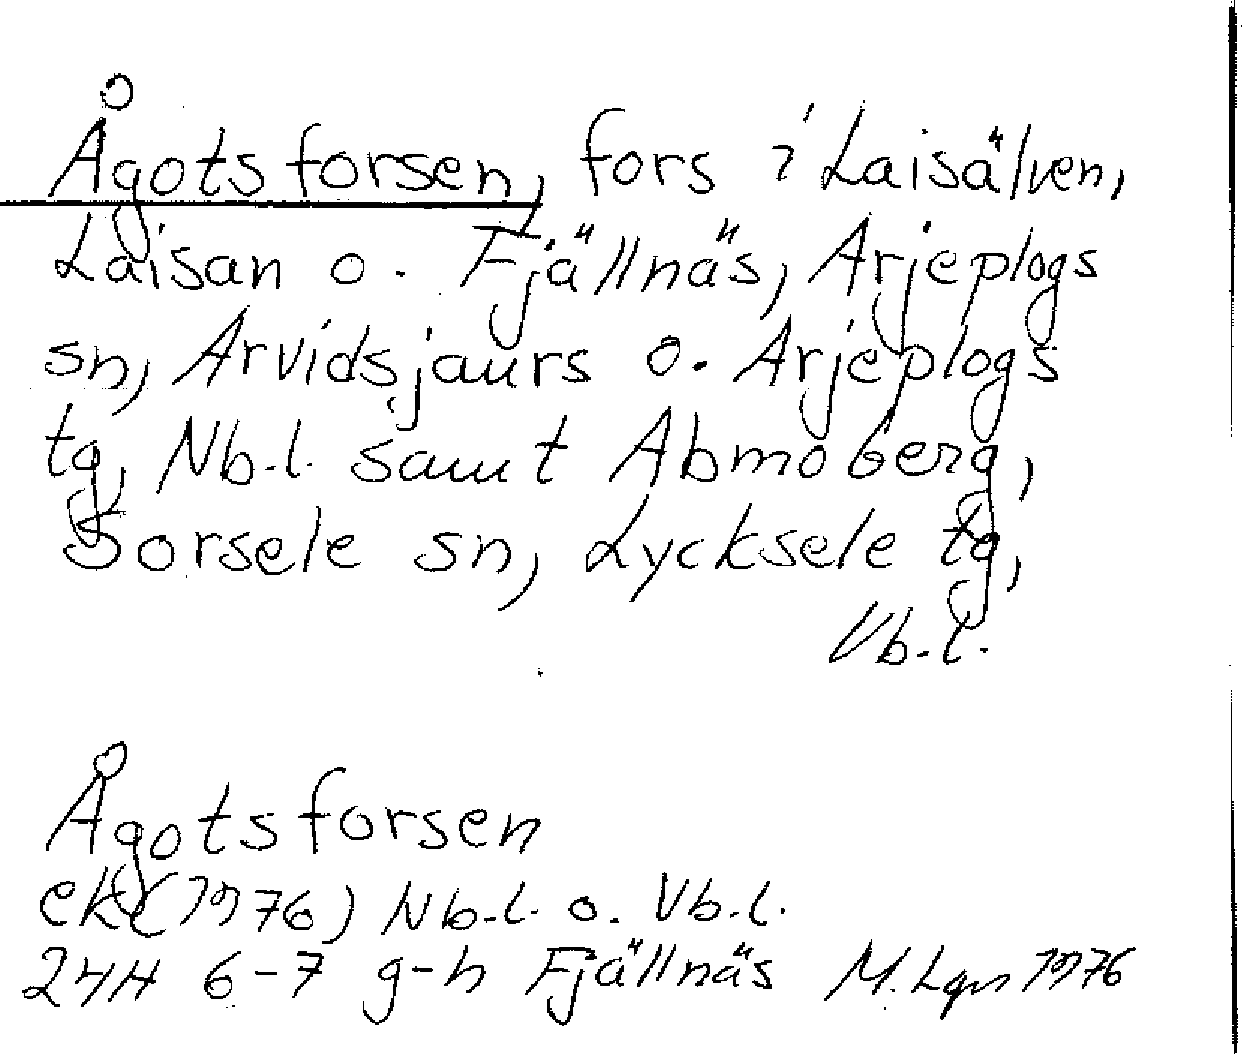 Ågotsforsen, fors i Laisälven,
Laisan o. Fjällnäs, Arjeplogs
sn, Arvidsjaurs o. Arjeplogs
tg, Nb.l. samt Abmoberg,
Sorsele sn, Lycksele tg,
Vb.l.
Ågotsforsen
ek (1976) Nb.l. o. Vb.l.
24H 6-7 g-h Fjällnäs M. Lgn 1976